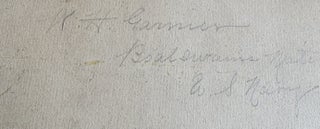 W. H. Garnier
Boatswains Mate
U S Navy